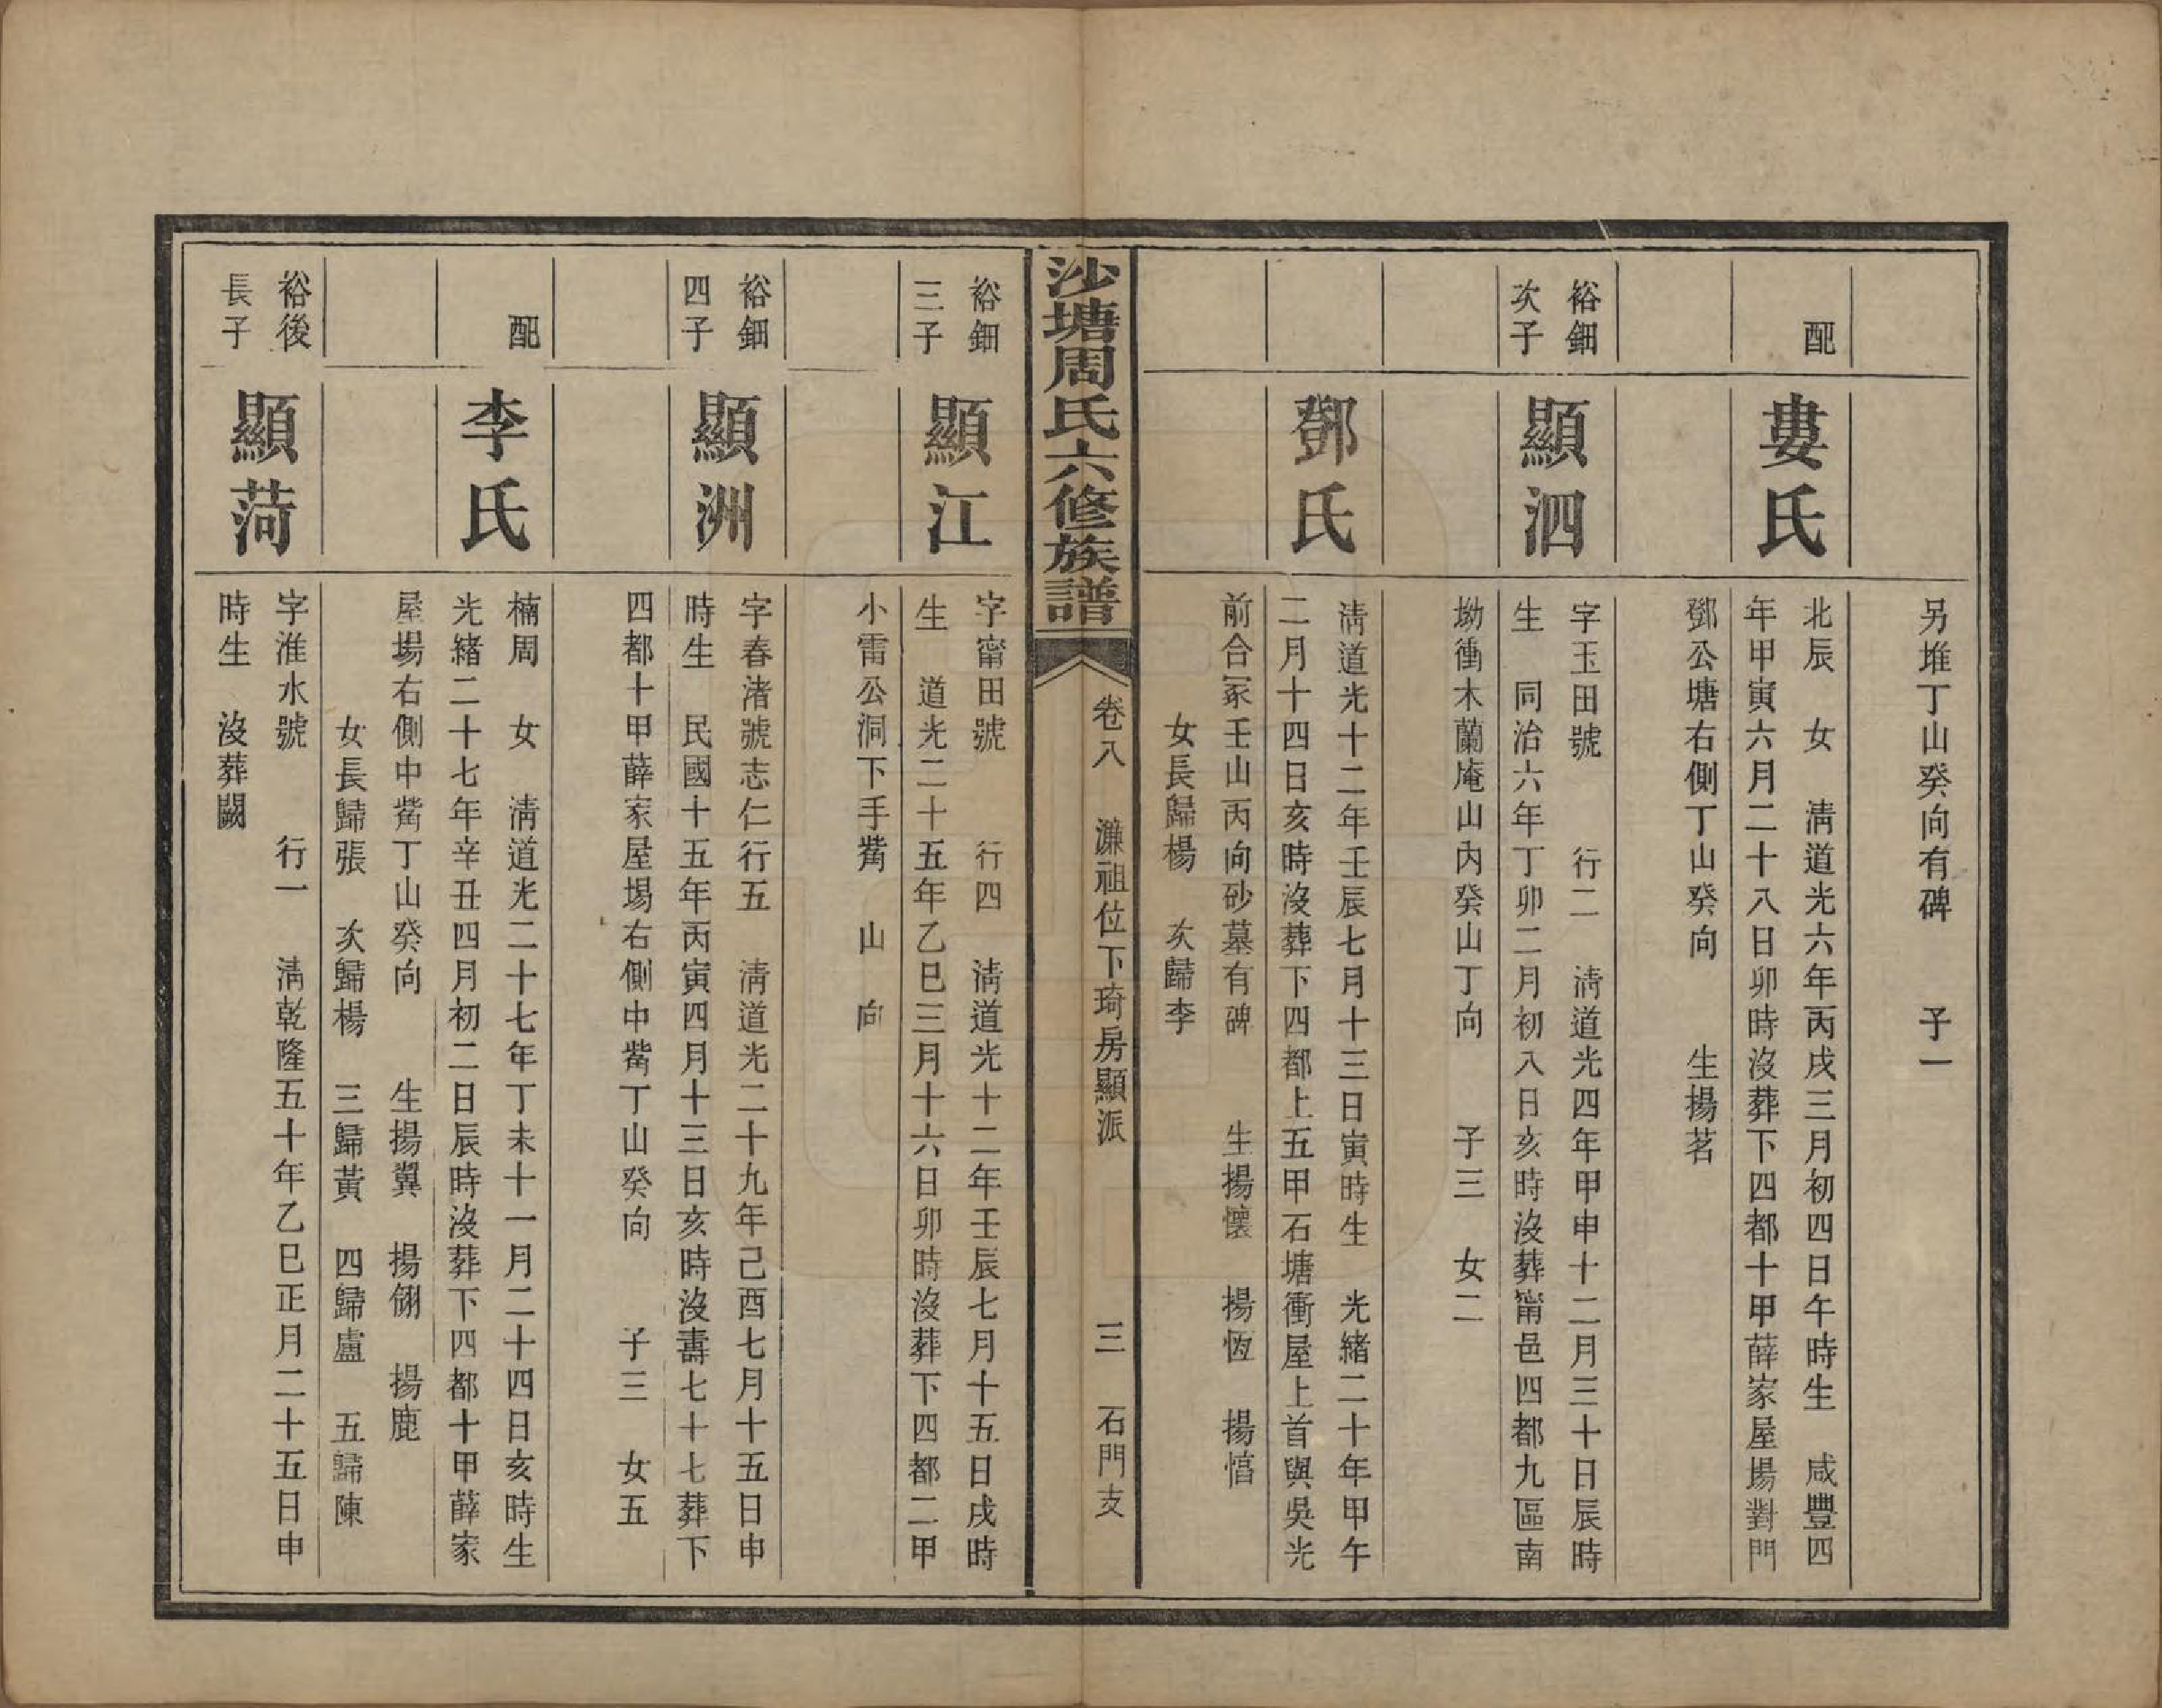 另堆丁山癸向有碑　子一
配
婁氏
北辰　女　淸道光六年丙戌三月初四日午時生　咸豐四
年甲寅六月二十八日卯時沒葬下四都十甲薛家屋場對門
鄧公塘右側丁山癸向　生揚茗
裕鈿
次子
顯泗
字玉田號　行二　淸道光四年甲申十二月三十日辰時
生　同治六年丁卯二月初八日亥時沒葬甯邑四都九區南
坳衝木蘭庵山內癸山丁向　子三　女二
鄧氏
淸道光十二年壬辰七月十三日寅時生　光緒二十年甲午
二月十四日亥時沒葬下四都上五甲石塘衝屋上首與吳光
前合冢壬山丙向砂墓有碑　生揚懷　揚恆　揚愭
女長歸楊　次歸李
沙塘周氏六修族譜
卷八　濂祖位下琦房顯派　三　石門支
裕鈿
三子
顯江
字甯田號　行四　淸道光十二年壬辰七月十五日戌時
生　道光二十五年乙巳三月十六日卯時沒葬下四都二甲
小雷公洞下手觜　山　向
裕鈿
四子
顯洲
字春渚號志仁行五　淸道光二十九年己酉七月十五日申
時生　民國十五年丙寅四月十三日亥時沒壽七十七葬下
四都十甲薛家屋場右側中觜丁山癸向　子三　女五
配
李氏
楠周　女　淸道光二十七年丁未十一月二十四日亥時生
光緒二十七年辛丑四月初二日辰時沒葬下四都十甲薛家
屋場右側中觜丁山癸向　生揚翼　揚翎　揚鹿
女長歸張　次歸楊　三歸黃　四歸盧　五歸陳
裕後
長子
顯菏
字淮水號　行一　淸乾隆五十年乙巳正月二十五日申
時生　沒葬闕